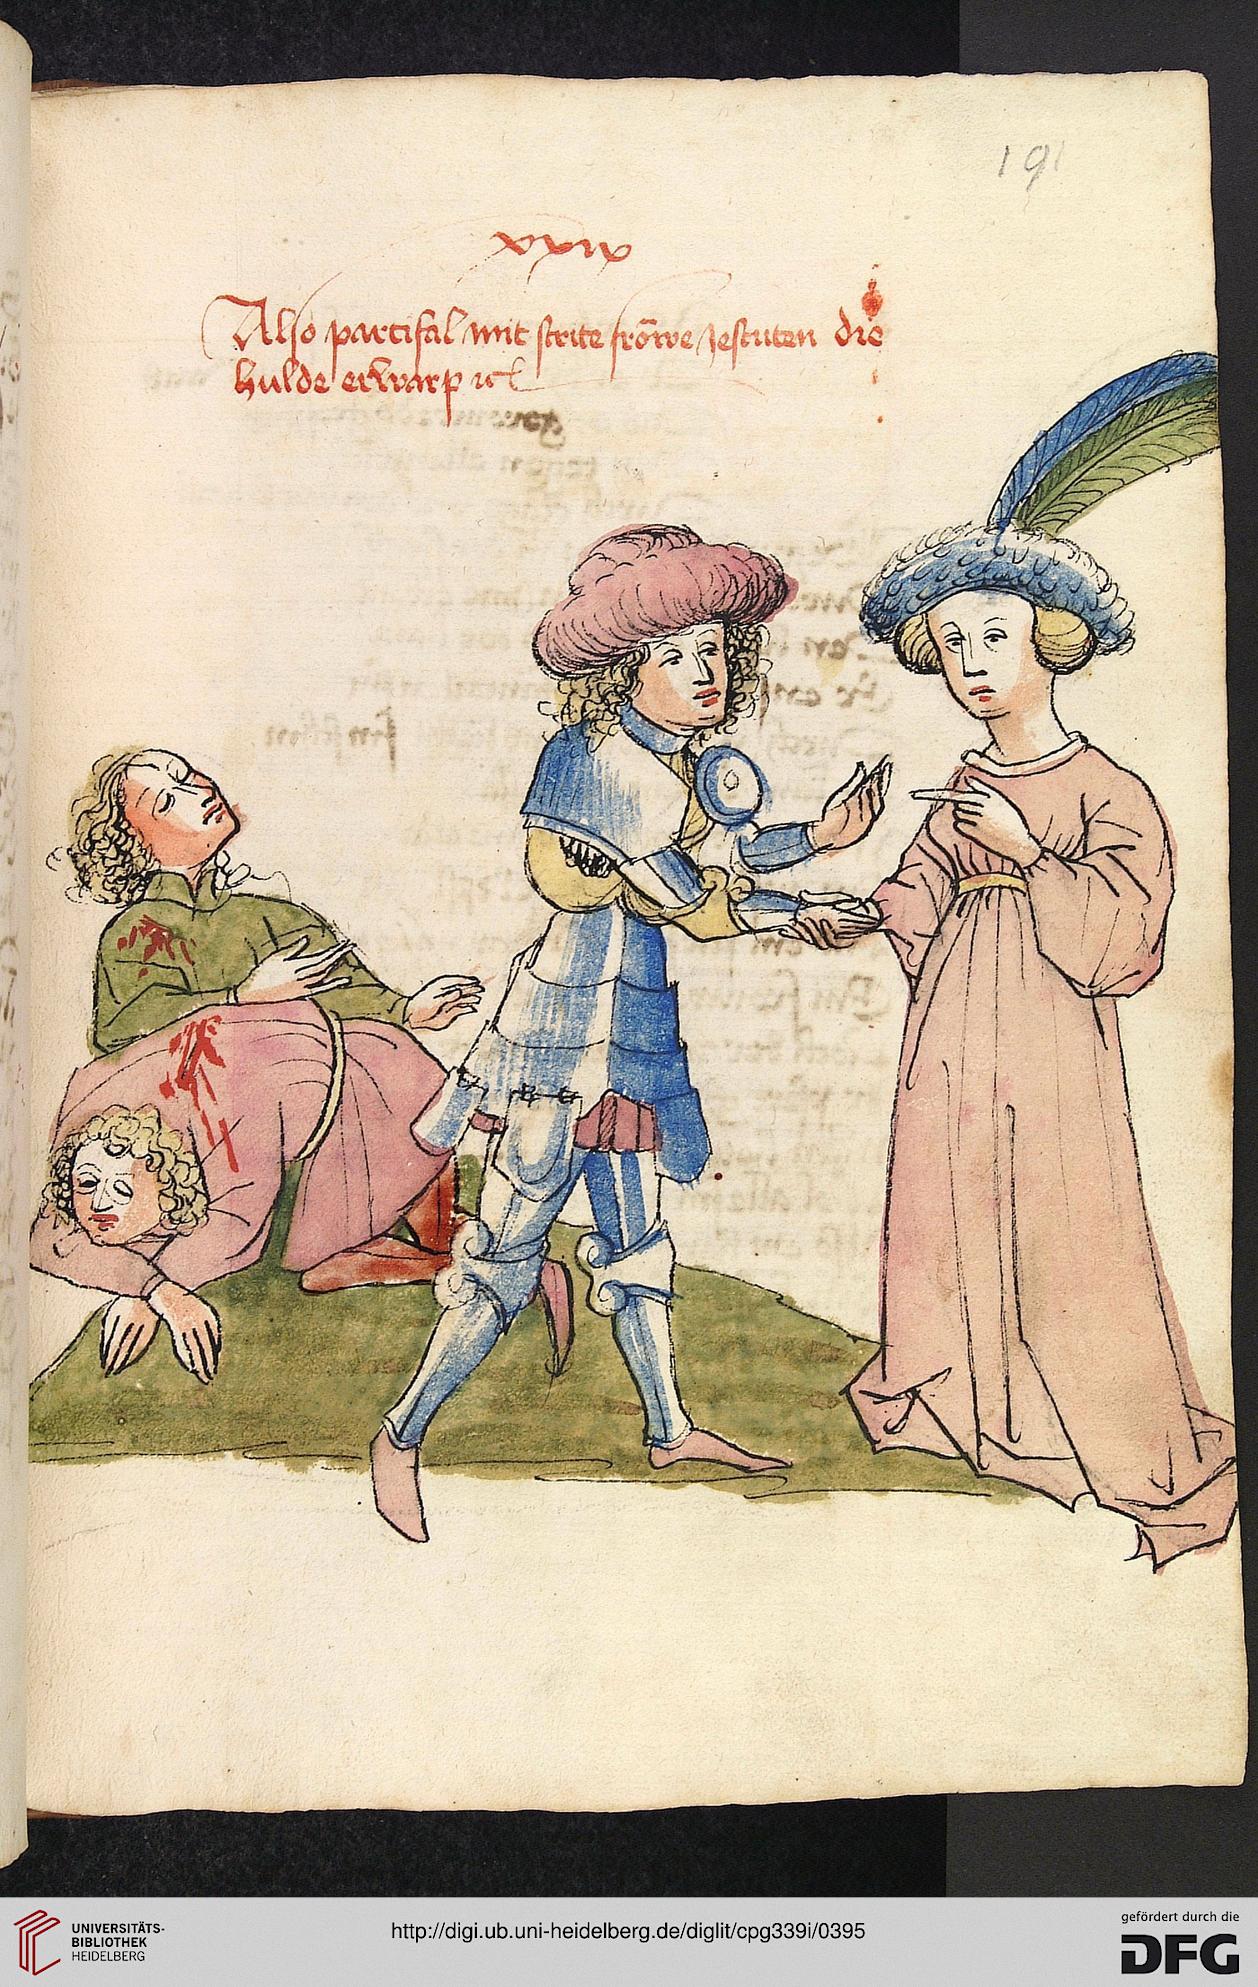 191
xxix
Also partifal mit strite frowe Jestuten die
hulde erwarp
UNIVERSITÄTS-
BIBLIOTHEK
HEIDELBERG
http://digi.ub.uni-heidelberg.de/diglit/cpg339i/0395
gefördert durch die
DFG